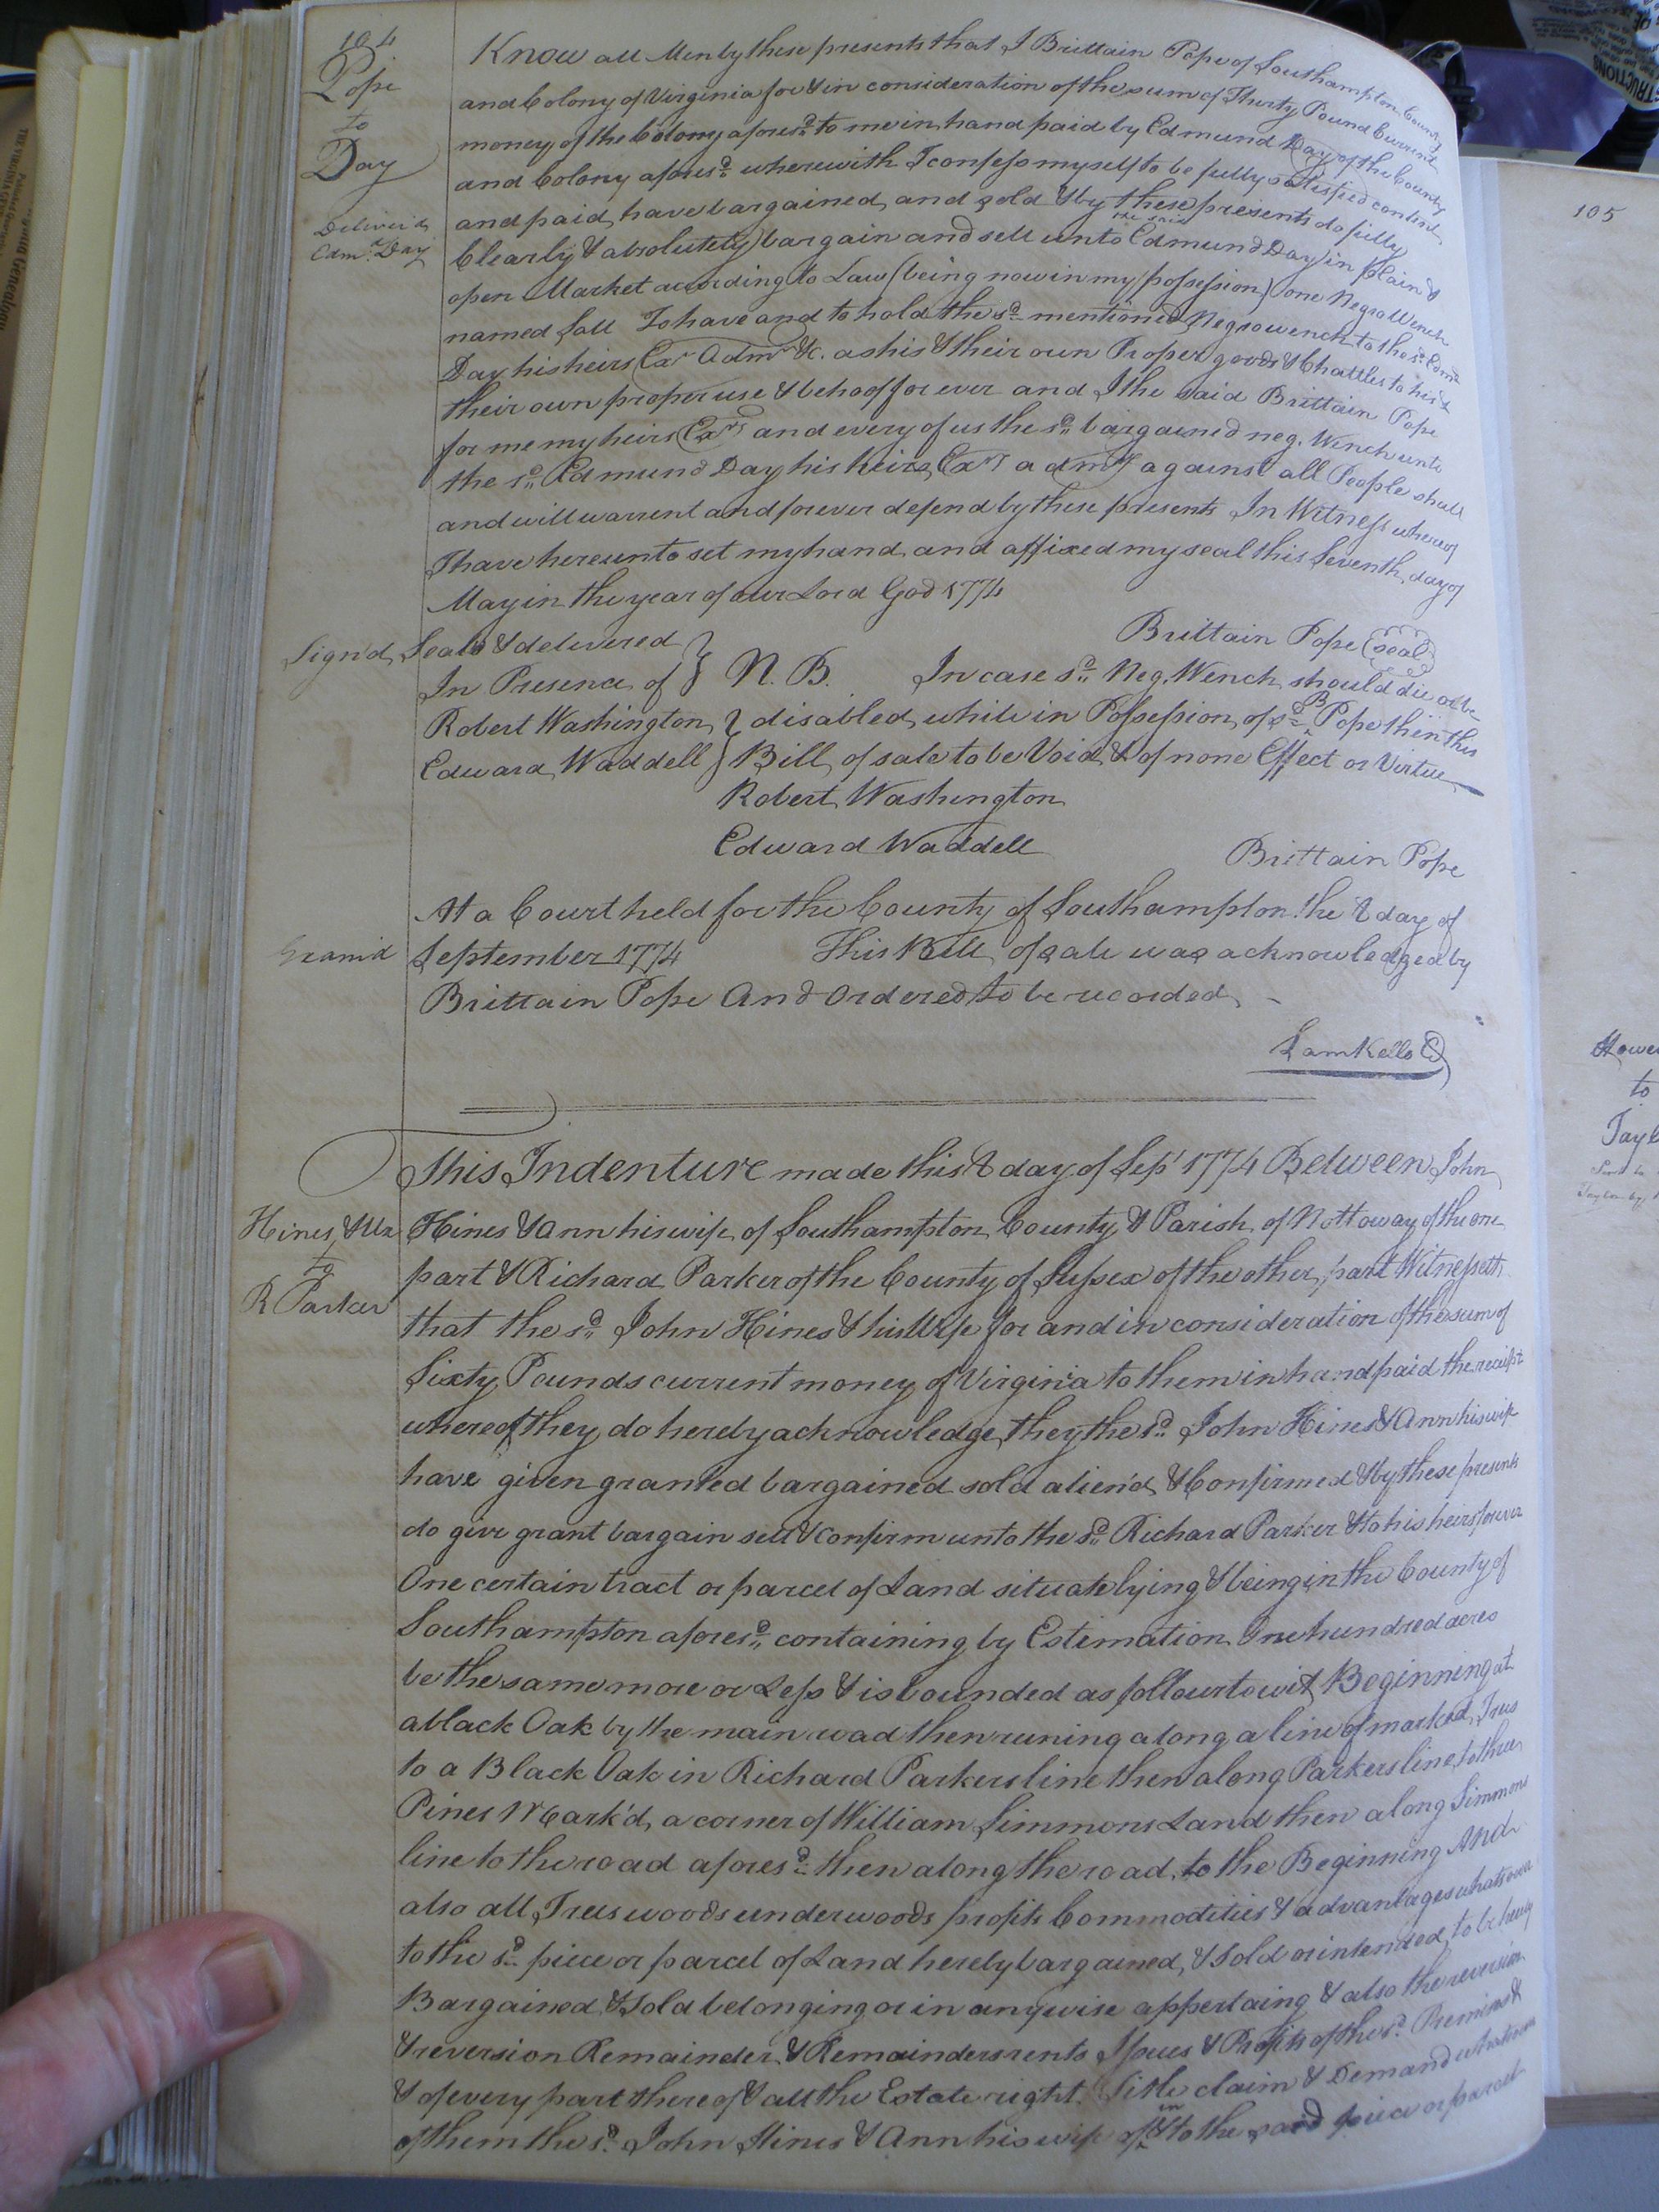 104
Pope
to
Day
Deliver'd
Edmd. Day
Know all Men by these presents that I Brittain Pope of Southampton County
and Colony of Virginia for & in consideration of the sum of Thirty Pound Current
money of the Colony aforesd. to me in hand paid by Edmund Day of the County
and Colony aforesd. wherewith I confess myself to be fully satisfied content
and paid, have bargained, and sold & by these presents do fully
Clearly & absolutely bargain and sell unto the said Edmund Day in plain &
open Market according to Law (being now in my possession) one Negro Wench
named Sall To have and to hold the sd. mentioned Negro wench to the sd. Edmd.
Day his heirs Exr. Admr. &c. as his & their own Proper goods & Chattles to his &
their own proper use & behoof for ever and I the said Brittain Pope
for me my heirs Exrs. and every of us the sd. bargained neg. Wench unto
the sd. Edmund Day his heirs, Exrs admrs against all People shall
and will warrent and forever defend by these presents In Witness whereof
I have hereunto set my hand and affixed my seal this Seventh day of
May in the year of our Lord God 1774
Brittain Pope (seal)
Sign'd, Seald & delivered
In Presence of } N. B. In case sd. Neg. Wench should die or be
Robert Washington } disabled while in Possession of sd. B Pope then this
Edward Waddell } Bill of sale to be Void & of none Effect or Virtue
Robert Washington
Edward Waddell
Brittain Pope
At a Court held for the County of Southampton the 8 day of
Exam'd
September 1774 This Bill of sale was acknowledged by
Brittain Pope And Ordered to be recorded
Sam Kello C
This Indenture made this 8 day of Sept 1774 Between John
Hines & Ux
to
R Parker
Hines & Ann his wife of Southampton County & Parish of Nottoway of the one
part & Richard Parker of the County of Sussex of the other part Witnesseth
that the sd. John Hines & his Wife for and in consideration of the sum of
Sixty Pounds current money of Virginia to them in hand paid the receipt
whereof they do hereby acknowledge, they the sd. John Hines & Ann his wife
have given granted bargained sold alien'd & Confirmed & by these presents
do give grant bargain sell & confirm unto the sd. Richard Parker & to his heirs forever
One certain tract or parcel of Land situate lying & being in the County of
Southampton aforesd. containing by Estimation One hundred acres
be the same more or Less & is bounded as followr to wit Beginning at
a black Oak by the main road then runing along a line of marked Trees
to a Black Oak in Richard Parkers line then along Parkers line to three
Pines Mark'd, a corner of William Simmons Land then along Simmons
line to the road aforesd. then along the road, to the Beginning And
also all Trees woods underwoods profits Commodities & advantages whatsoever
to the sd. piece or parcel of Land hereby bargained, & Sold or intended to be hereby
Bargained & Sold belonging or in anywise appertaing & also the reversion
& reversion Remainder & Remainders rents Issues & Profits of the sd. Premises &
& of every part thereof & all the Estate right Title claim & Demand whatsoever
of them the sd. John Hines & Ann his wife of in & to the said piece or parcel
105
to